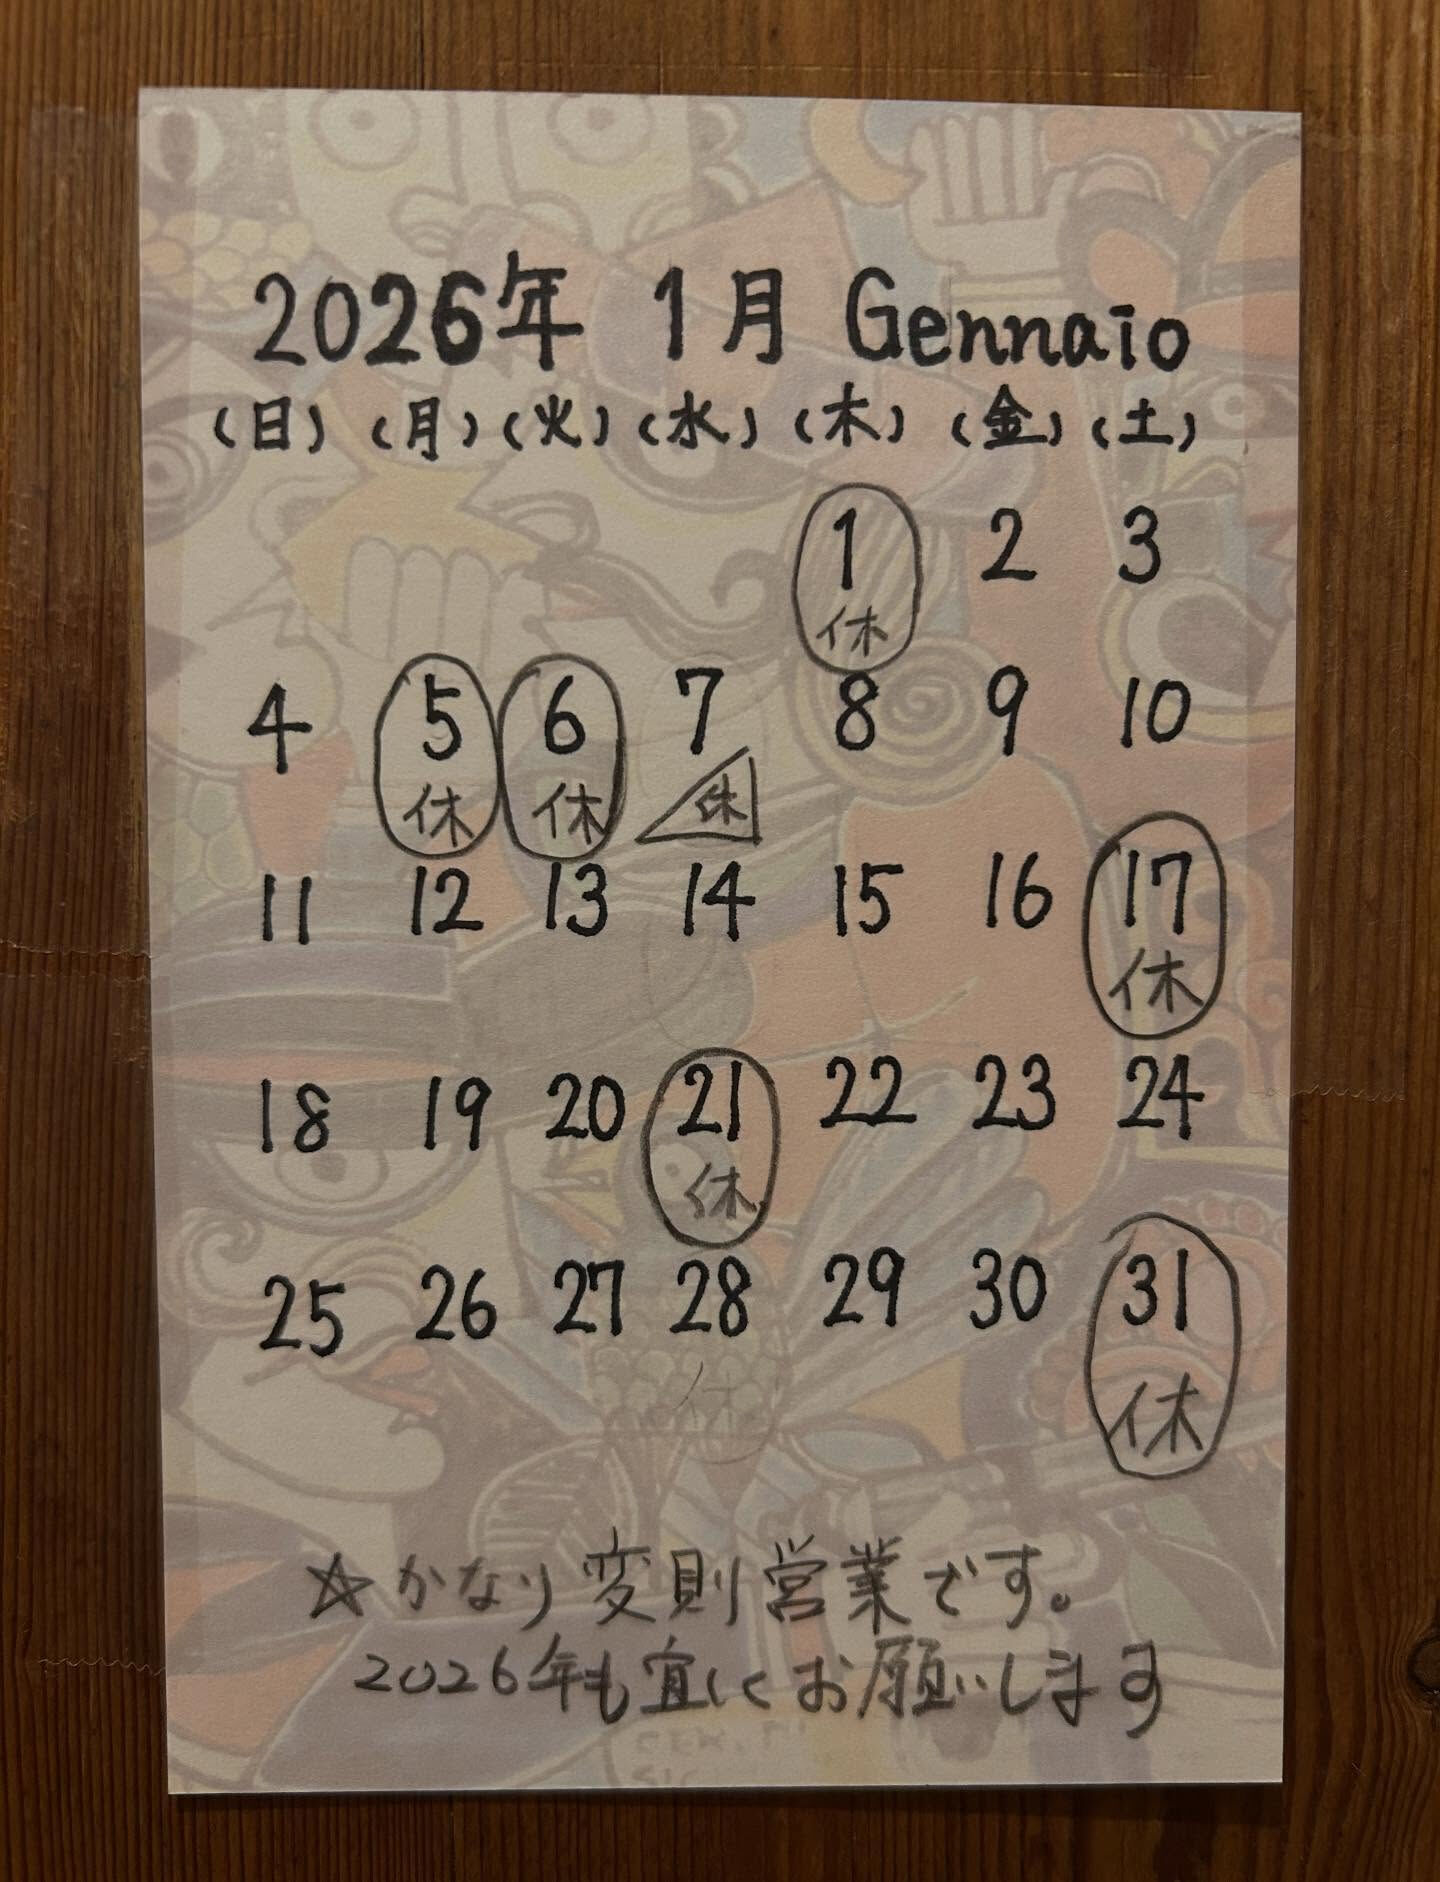 2026年 1月 Gennaio
(日) (月) (火) (水) (木) (金) (土)
1 2 3
休
4 5 6 7 8 9 10
休 休 休
11 12 13 14 15 16 17
休
18 19 20 21 22 23 24
休
25 26 27 28 29 30 31
休 休
☆かなり変則営業です。
2026年も宜しくお願いします